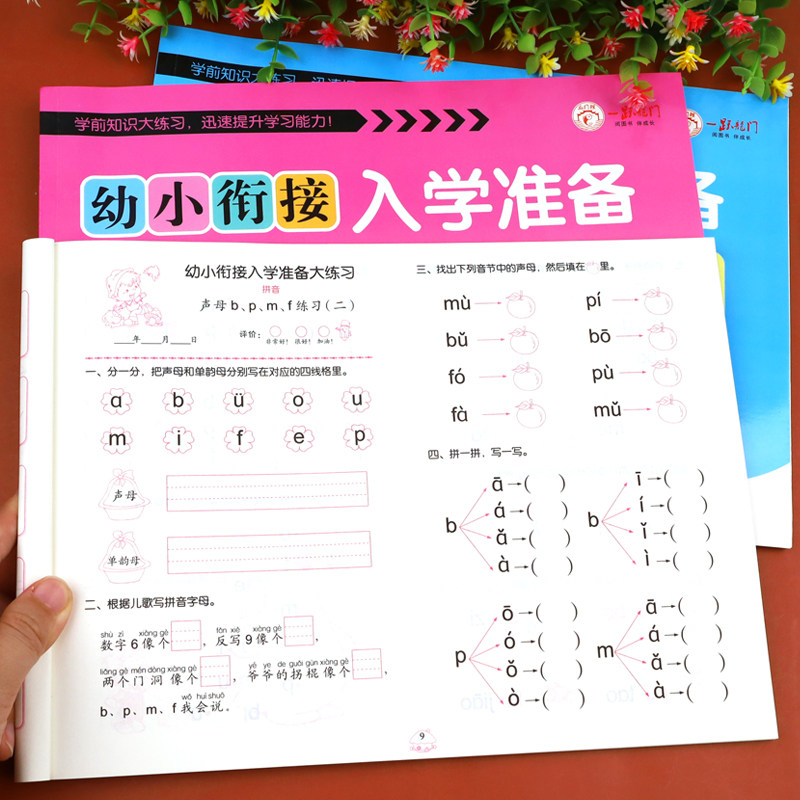 学前知识大练习，迅速提升学习能力！
一跃龙门
阅图书 伴成长
学前知识大练习，迅速提升学习能力！
一跃龙门
阅图书 伴成长
幼小衔接 入学准备
备
幼小衔接入学准备大练习
拼音
声母 b、p、m、f 练习(二)
___年___月___日
评价：
非常好！ 很好！ 加油！
一、分一分，把声母和单韵母分别写在对应的四线格里。
a b ü o u
m i f e p
声母
单韵母
二、根据儿歌写拼音字母。
shù zì xiàng gè fǎn xiě xiàng gè
数字6像个 ，反写9像个 ，
liǎng gè mén dòng xiàng gè yé ye de guǎi gùn xiàng gè
两个门洞像个 ，爷爷的拐棍像个 ，
wǒ huì shuō
b、p、m、f 我会说。
三、找出下列音节中的声母，然后填在 里。
mù pí
bǔ bō
fó pù
fà mǔ
四、拼一拼，写一写。
b
ā→( )
á→( )
ǎ→( )
à→( )
b
ī→( )
í→( )
ǐ→( )
ì→( )
p
ō→( )
ó→( )
ǒ→( )
ò→( )
m
ā→( )
á→( )
ǎ→( )
à→( )
9